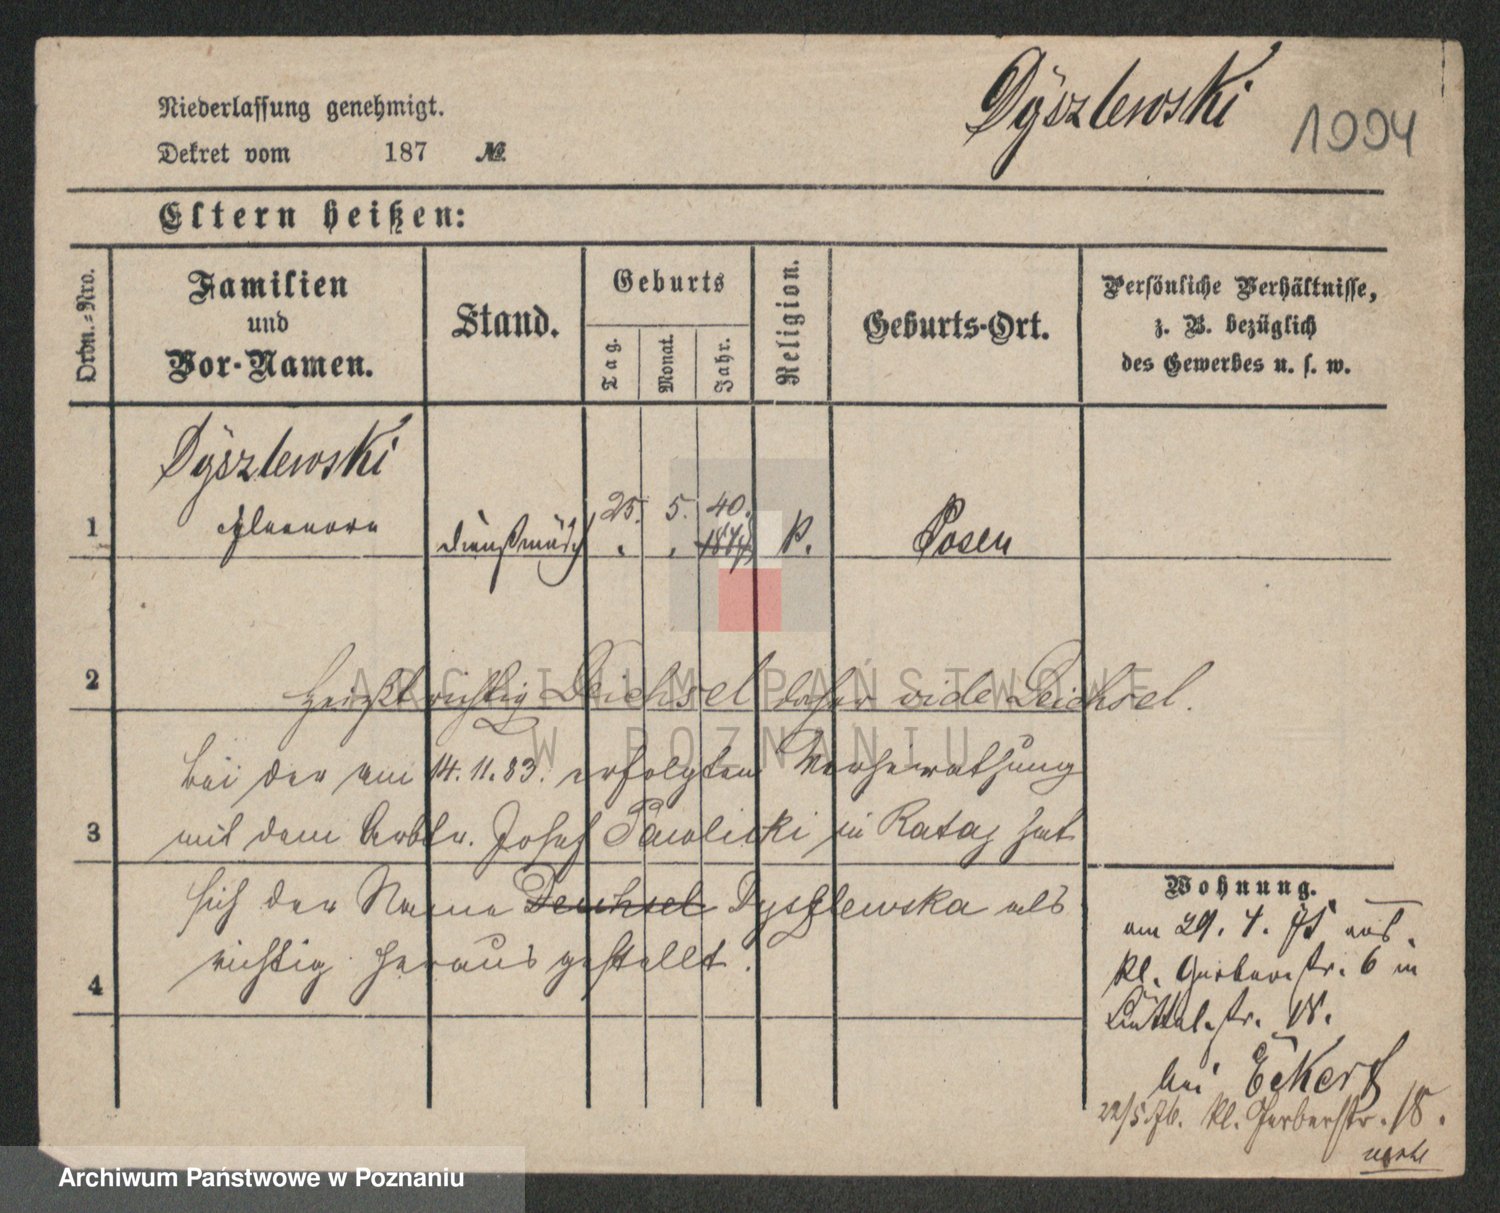 Dyszlewski
1994
Niederlassung genehmigt.
Dekret vom 187 №
Eltern heißen:
Ordn.-Nro.
Familien
und
Vor-Namen.
Stand.
Geburts
Tag.
Monat.
Jahr.
Religion.
Geburts-Ort.
Persönliche Verhältnisse,
z. B. bezüglich
des Gewerbes u. s. w.
Dyszlewski
25. 5. 40.
1 Eleonora Dienstmädch 1844 K. Posen
2 heißt richtig Deichsel daher vide Deichsel.
Bei der am 14.11.83. erfolgten Verheirathung
3 mit dem Arbtr. Josef Pawlicki in Rataj hat
sich der Name Deichsel Dyszlewska als
richtig herausgestellt.
4
Wohnung.
am 29. 4. 75 aus
kl. Gerberstr. 6 in
18.
bei Eckert
22/5 76. kl. Gerberstr. 18.
ARCHIWUM PAŃSTWOWE
W POZNANIU
Archiwum Państwowe w Poznaniu